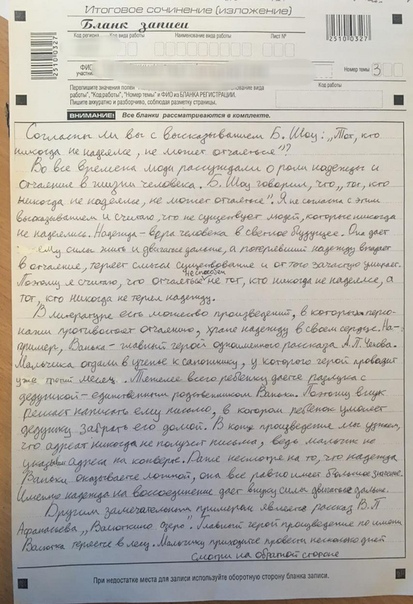 Итоговое сочинение (изложение)
Бланк записи
Код региона Код вида работы Наименование вида работы Лист №
*2310032?*
ФИО участника
Номер темы 3
Перепишите значения полей
"Код работы", "Номер темы" и ФИО из БЛАНКА РЕГИСТРАЦИИ.
Пишите аккуратно и разборчиво, соблюдая разметку страницы.
ВНИМАНИЕ! Все бланки рассматриваются в комплекте.
Согласны ли вы с высказыванием Б. Шоу: „Тот, кто
никогда не надеялся, не может отчаяться"?
Во все времена люди рассуждали о роли надежды и
отчаяния в жизни человека. Б. Шоу говорил, что „тот, кто
никогда не надеялся, не может отчаяться". Я не согласен с этим
высказыванием и считаю, что не существует людей, которые никогда
не надеялись. Надежда - вера человека в светлое будущее. Она дает
ему силы жить и двигаться дальше, а потерявший надежду впадает
в отчаяние, теряет смысл существование и от того зачастую умирает.
Поэтому я считаю, что отчаяться не способен не тот, кто никогда не надеялся, а
тот, кто никогда не терял надежду.
В литературе есть множество произведений, в которых персо-
нажи противостоят отчаянию, храня надежду в своем сердце. На-
пример, Ванька - главный герой одноименного рассказа А.П. Чехова.
Мальчика отдали в ученье к сапожнику, у которого герой проводит
уже третий месяц. Тяжелее всего ребёнку дается разлука с
дедушкой - единственным родственником Ваньки. Поэтому внук
решает написать ему письмо, в котором ребёнок умоляет
дедушку забрать его домой. В конце произведения мы узнаем,
что адресат никогда не получит письма, ведь мальчик не
указывал адреса на конверте. Даже несмотря на то, что надежда
Ваньки оказывается ложной, она все равно имеет большое значение.
Именно надежда на воссоединение дает внуку силы двигаться дальше.
Другим замечательным примером является рассказ В.П
Афанасьева „Васюткино озеро". Главный герой произведение по имени
Васютка теряется в лесу. Мальчику приходится провести несколько дней
Смотри на обратной стороне
При недостатке места для записи используйте оборотную сторону бланка записи.